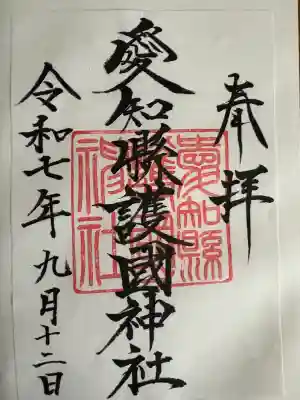 奉拝
愛知縣護國神社
令和七年九月十二日
愛知縣
護國神
社